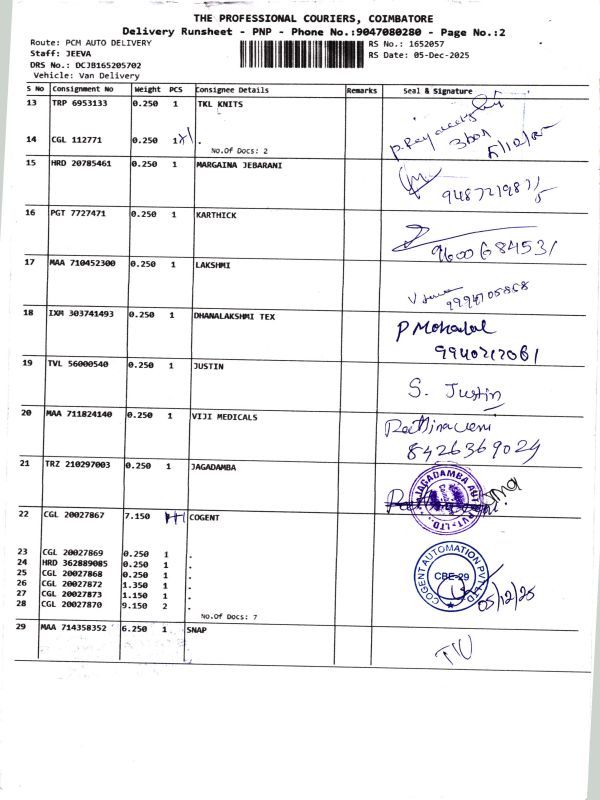 THE PROFESSIONAL COURIERS, COIMBATORE
Delivery Runsheet - PNP - Phone No.:9047080280 - Page No.:2
Route: PCM AUTO DELIVERY RS No.: 1652057
Staff: JEEVA RS Date: 05-Dec-2025
DRS No.: DCJB165205702
Vehicle: Van Delivery
S No Consignment No Weight PCS Consignee Details Remarks Seal & Signature
13 TRP 6953133 0.250 1 TKL KNITS
14 CGL 112771 0.250 1 .
No.Of Docs: 2
5/12/25
15 HRD 20785461 0.250 1 MARGAINA JEBARANI
16 PGT 7727471 0.250 1 KARTHICK
9600684531
17 MAA 710452300 0.250 1 LAKSHMI
18 IXM 303741493 0.250 1 DHANALAKSHMI TEX P Mohalal
9940217061
19 TVL 56000540 0.250 1 JUSTIN S. Justin
20 MAA 711824140 0.250 1 VIJI MEDICALS
8426369029
21 TRZ 210297003 0.250 1 JAGADAMBA
JAGADAMBA AUT
PVT. LTD.
22 CGL 20027867 7.150 COGENT
23 CGL 20027869 0.250 1 .
24 HRD 362889085 0.250 1 .
25 CGL 20027868 0.250 1 .
26 CGL 20027872 1.350 1 .
27 CGL 20027873 1.150 1 .
28 CGL 20027870 9.150 2 .
No.Of Docs: 7
COGENT AUTOMATION PVT LTD
CBE-29
05/12/25
29 MAA 714358352 6.250 1 SNAP